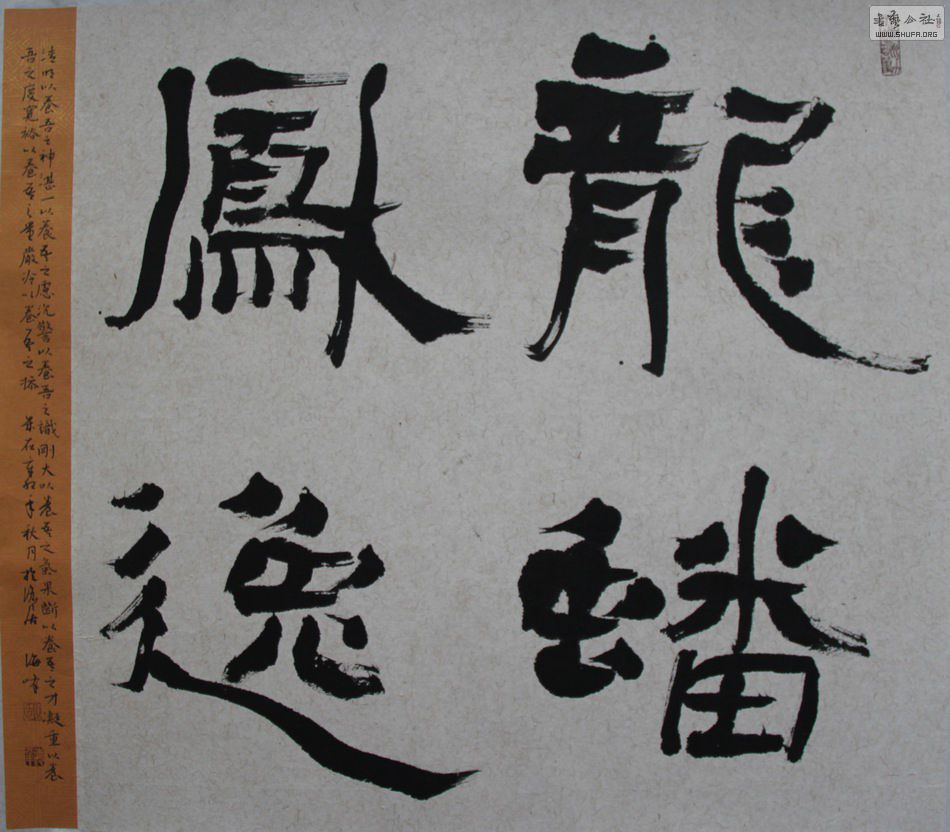 龍蟠
鳳逸
清明以養吾之神湛一以養吾之慮沉警以養吾之識剛大以養吾之氣果斷以養吾之才凝重以養
吾之度寬裕以養吾之量嚴冷以養吾之操 年秋月於
書藝公社
WWW.SHUFA.ORG